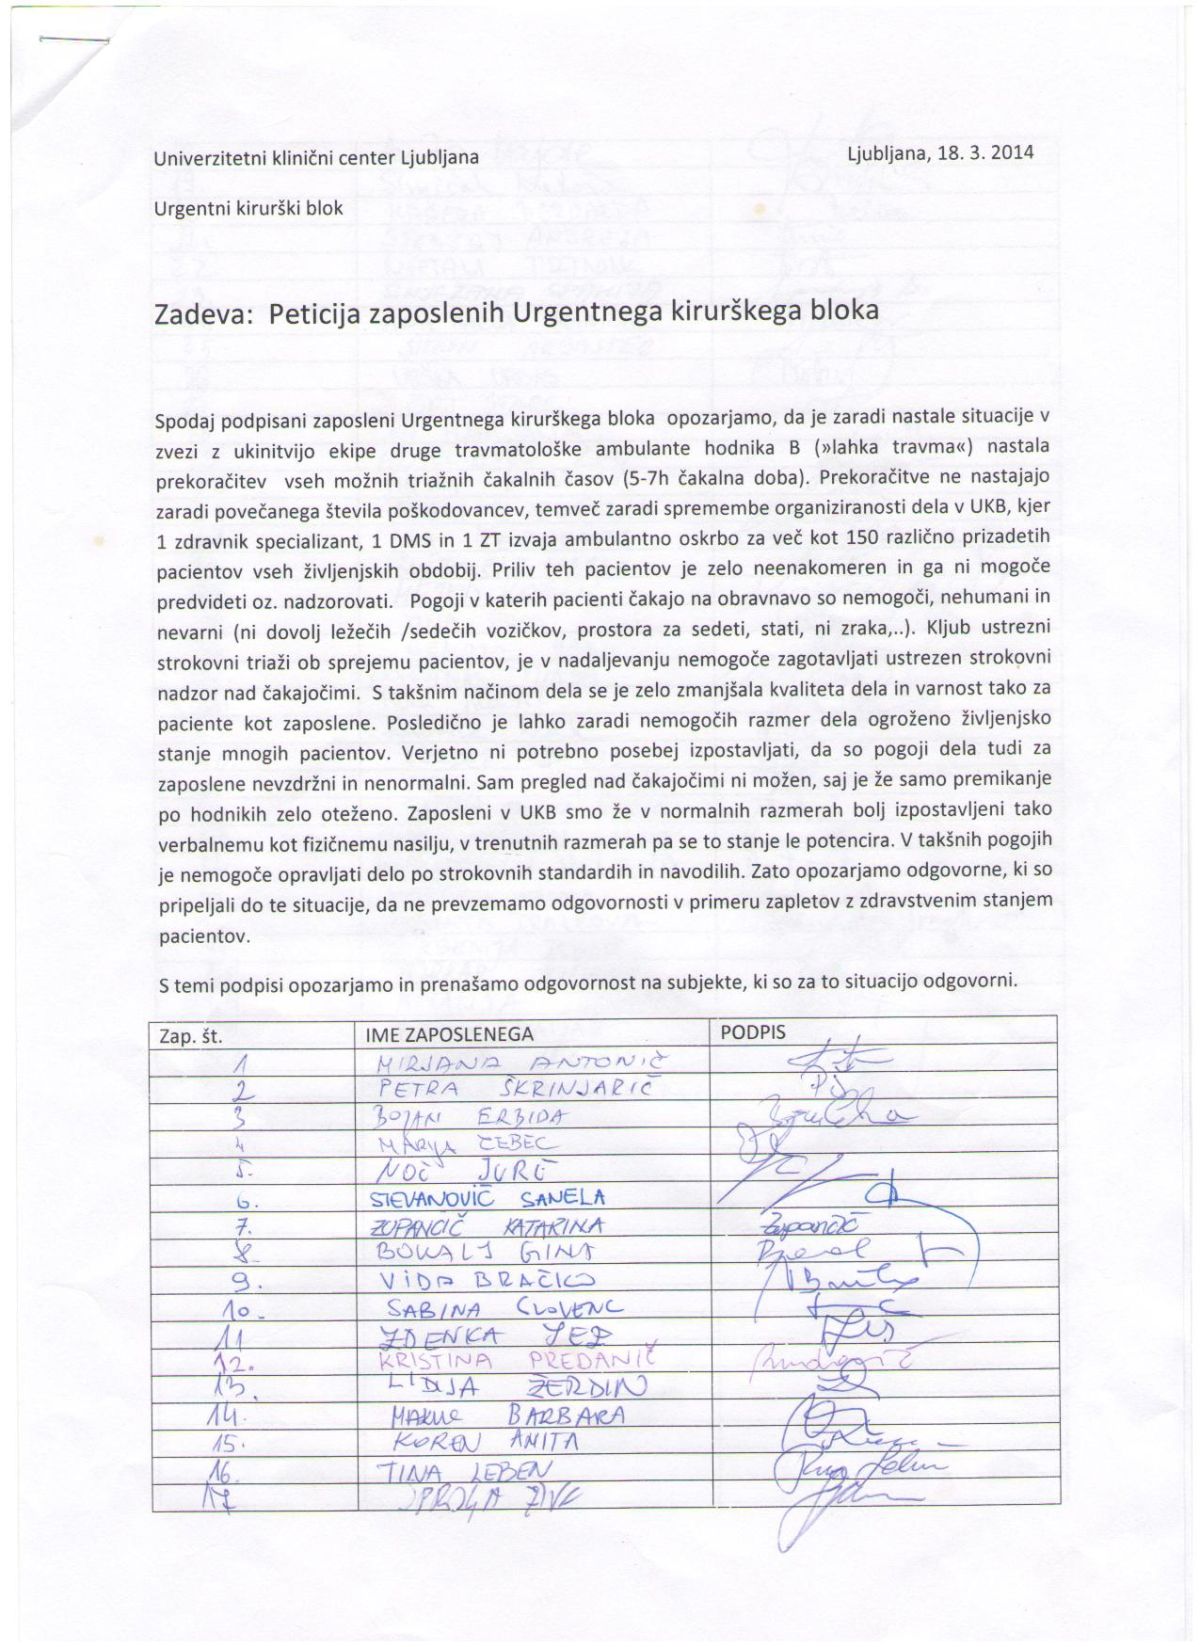 Univerzitetni klinični center Ljubljana
Ljubljana, 18. 3. 2014
Urgentni kirurški blok
Zadeva: Peticija zaposlenih Urgentnega kirurškega bloka
Spodaj podpisani zaposleni Urgentnega kirurškega bloka opozarjamo, da je zaradi nastale situacije v
zvezi z ukinitvijo ekipe druge travmatološke ambulante hodnika B (»lahka travma«) nastala
prekoračitev vseh možnih triažnih čakalnih časov (5-7h čakalna doba). Prekoračitve ne nastajajo
zaradi povečanega števila poškodovancev, temveč zaradi spremembe organiziranosti dela v UKB, kjer
1 zdravnik specializant, 1 DMS in 1 ZT izvaja ambulantno oskrbo za več kot 150 različno prizadetih
pacientov vseh življenjskih obdobij. Priliv teh pacientov je zelo neenakomeren in ga ni mogoče
predvideti oz. nadzorovati. Pogoji v katerih pacienti čakajo na obravnavo so nemogoči, nehumani in
nevarni (ni dovolj ležečih /sedečih vozičkov, prostora za sedeti, stati, ni zraka,..). Kljub ustrezni
strokovni triaži ob sprejemu pacientov, je v nadaljevanju nemogoče zagotavljati ustrezen strokovni
nadzor nad čakajočimi. S takšnim načinom dela se je zelo zmanjšala kvaliteta dela in varnost tako za
paciente kot zaposlene. Posledično je lahko zaradi nemogočih razmer dela ogroženo življenjsko
stanje mnogih pacientov. Verjetno ni potrebno posebej izpostavljati, da so pogoji dela tudi za
zaposlene nevzdržni in nenormalni. Sam pregled nad čakajočimi ni možen, saj je že samo premikanje
po hodnikih zelo oteženo. Zaposleni v UKB smo že v normalnih razmerah bolj izpostavljeni tako
verbalnemu kot fizičnemu nasilju, v trenutnih razmerah pa se to stanje le potencira. V takšnih pogojih
je nemogoče opravljati delo po strokovnih standardih in navodilih. Zato opozarjamo odgovorne, ki so
pripeljali do te situacije, da ne prevzemamo odgovornosti v primeru zapletov z zdravstvenim stanjem
pacientov.
S temi podpisi opozarjamo in prenašamo odgovornost na subjekte, ki so za to situacijo odgovorni.
Zap. št. IME ZAPOSLENEGA PODPIS
1 MIRJANA ANTONIČ
2 PETRA ŠKRINJARIČ PŠ
3 BOJAN ERBIDA
4 MARIJA ČEBEC
5. NOČ JURE
6. STEVANOVIČ SANELA
7. ZUPANČIČ KATARINA Zupančič
8. BOKALJ GINA
9. VIDA BRAČKO
10. SABINA SLOVENC
11 ZDENKA
12. KRISTINA PREDANIČ
13. LIDIJA ŽERDIN
14. BARBARA
15. KOREN ANITA
16. TINA LEBEN
17